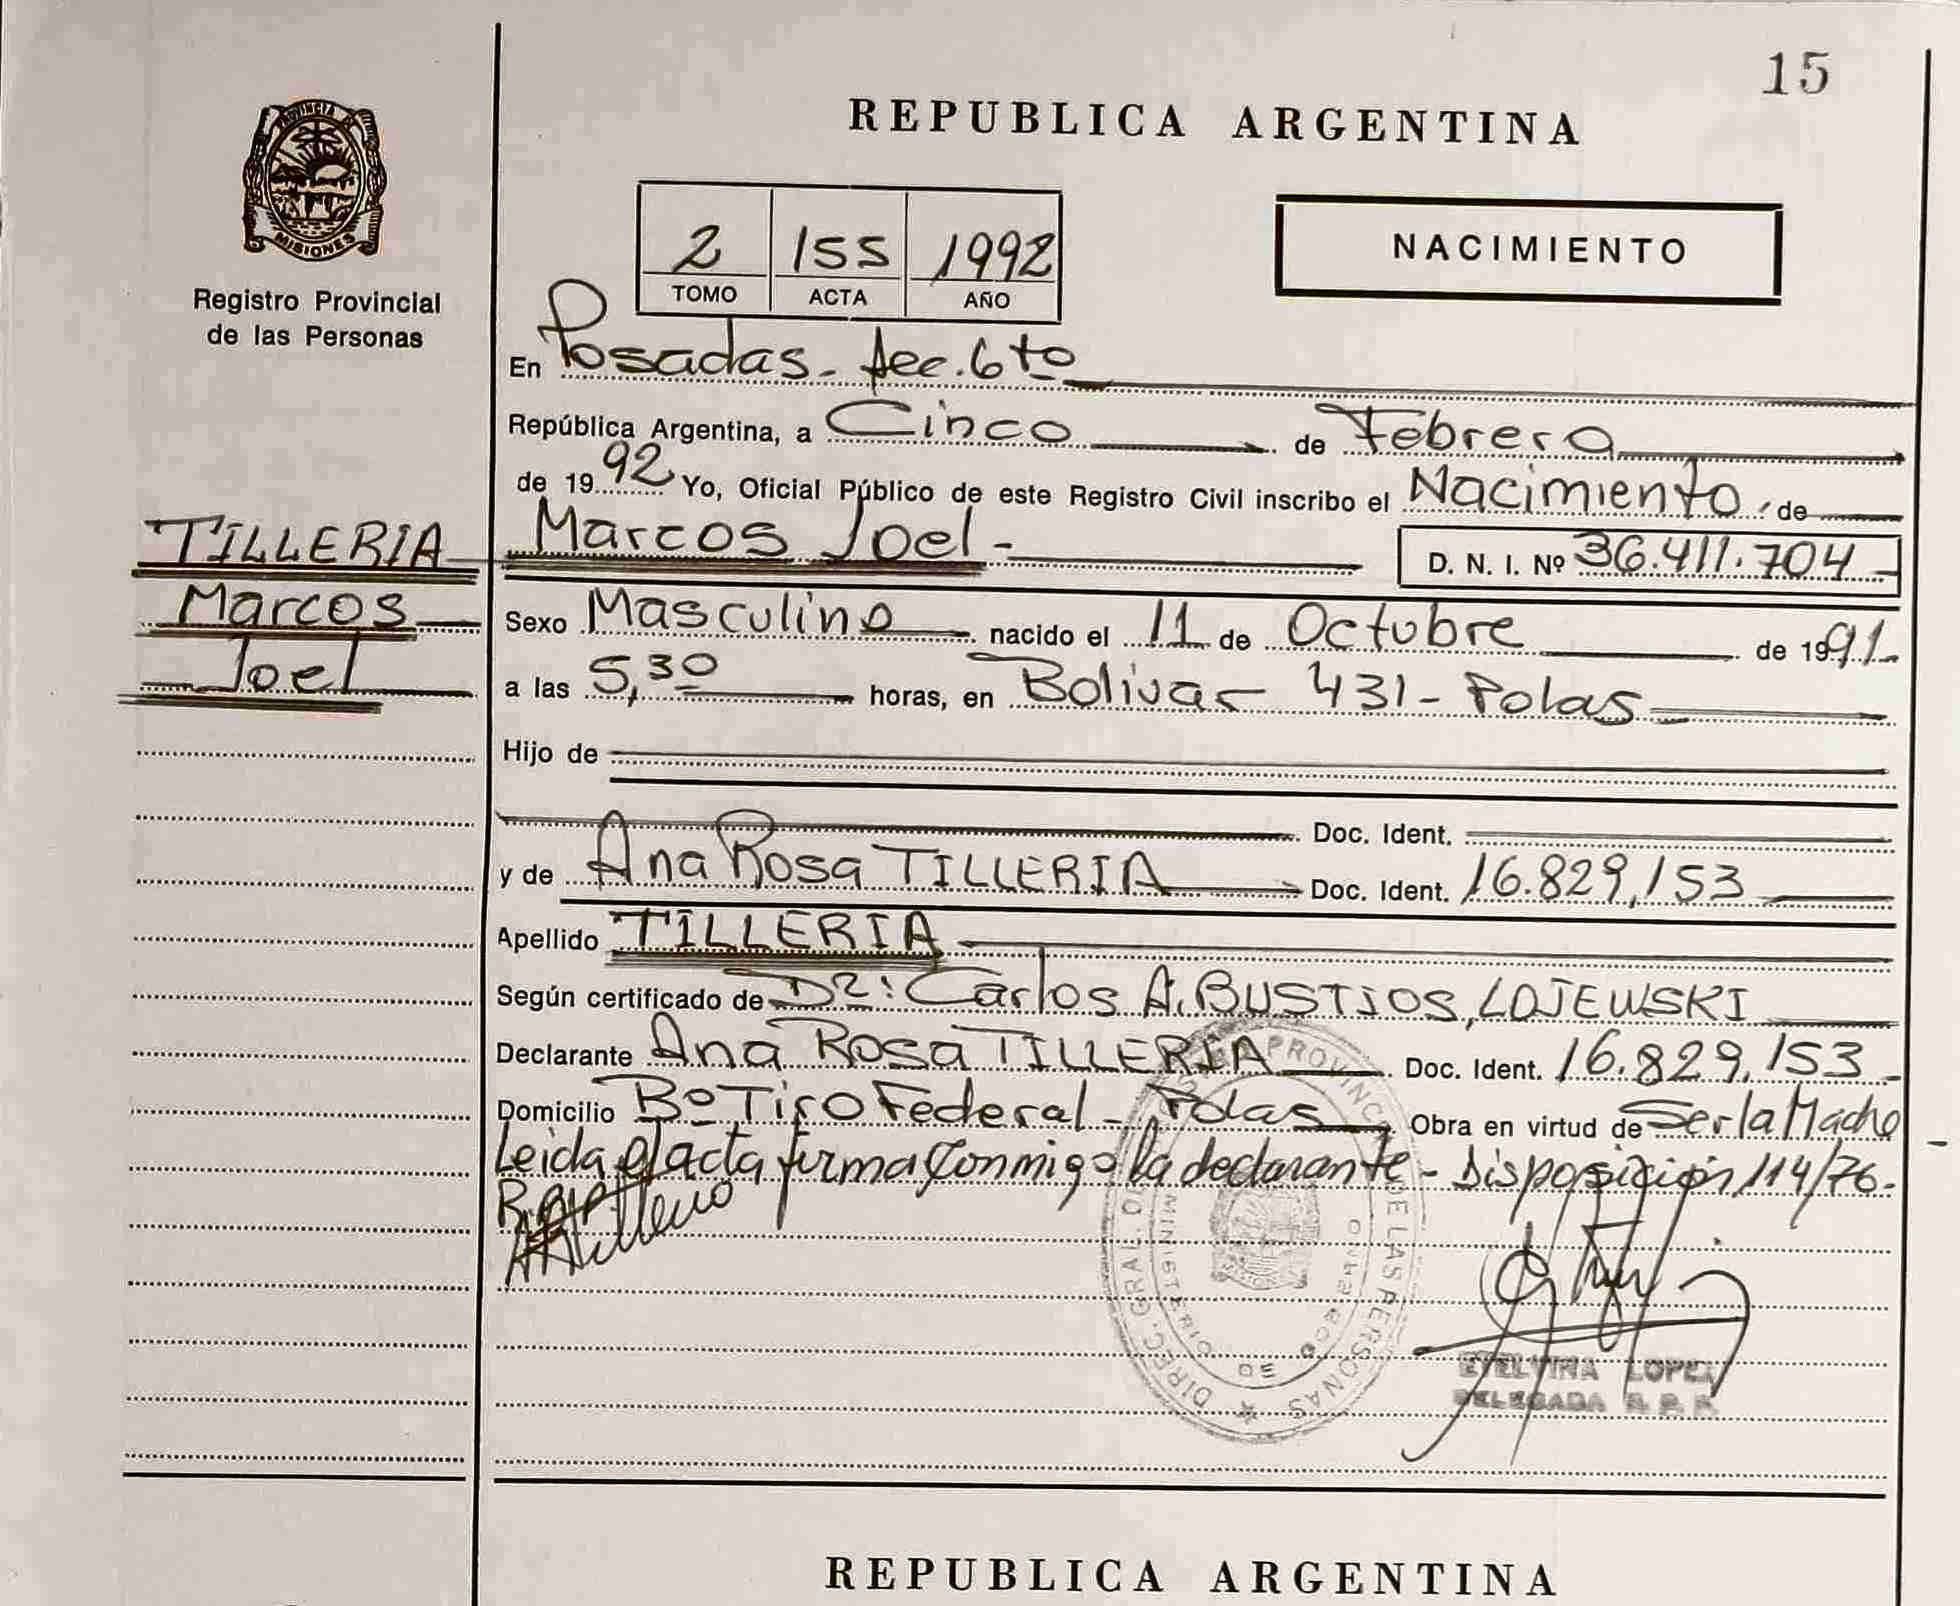 15
REPUBLICA ARGENTINA
PROVINCIA DE
MISIONES
Registro Provincial
de las Personas
2 155 1992
TOMO ACTA AÑO
NACIMIENTO
En Posadas - Sec. 6to
República Argentina, a Cinco de Febrero
de 1992 Yo, Oficial Público de este Registro Civil inscribo el Nacimiento de
TILLERIA
Marcos
Joel
Marcos Joel - D. N. I. Nº 36.411.704
Sexo Masculino nacido el 11 de Octubre de 1991
a las 5,30 horas, en Bolivar 431 - Pdas
Hijo de
Doc. Ident.
y de Ana Rosa TILLERIA Doc. Ident. 16.829.153
Apellido TILLERIA
Según certificado de Dr: Carlos A. BUSTIOS, LOJEWSKI
Declarante Ana Rosa TILLERIA Doc. Ident. 16.829.153
Domicilio Bº Tiro Federal - Pdas Obra en virtud de Ser la Madre
Leida el acta firma conmigo la declarante - Disposición 114/76.
DIREC. GRAL. DE PROVINC DE LAS PERSONAS
MINISTERIO DE GOB
LOPEZ
DELEGADA R. P. P.
REPUBLICA ARGENTINA